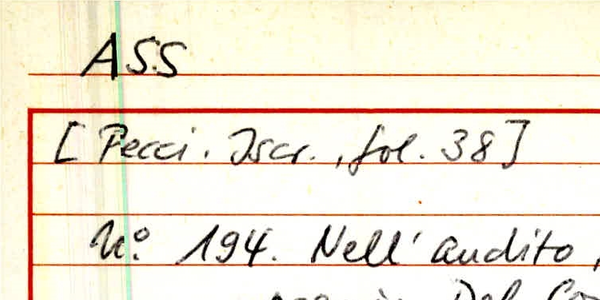 ASS
[Pecci. Iscr., fol. 38]
No. 194. Nell' audito,
Del